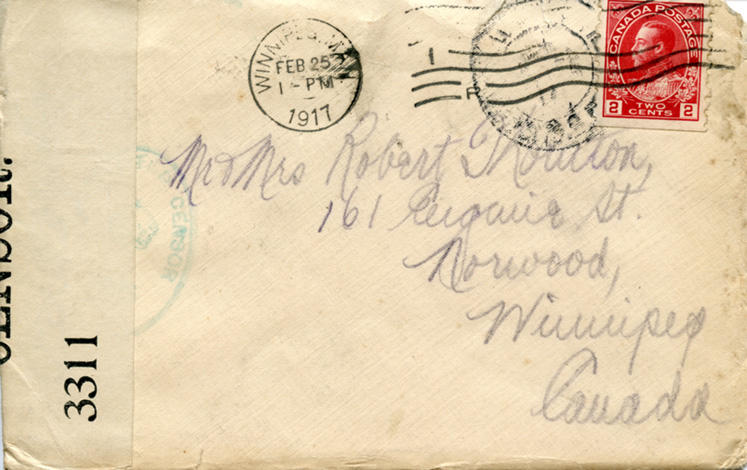 WINNIPEG, MAN
FEB 25
1 - PM
1917
CANADA POSTAGE
2 TWO CENTS 2
Mr & Mrs Robert
161 St.
Norwood,
Winnipeg
Canada
CENSOR
CENSOR.
3311